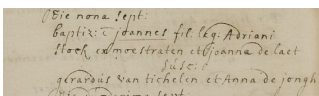 Die nona sept:
baptiz: ē joannes fil. leg. Adriani
stock ex moestraten et joanna de laet
susc:
gerardus van tichelen et Anna de jongh